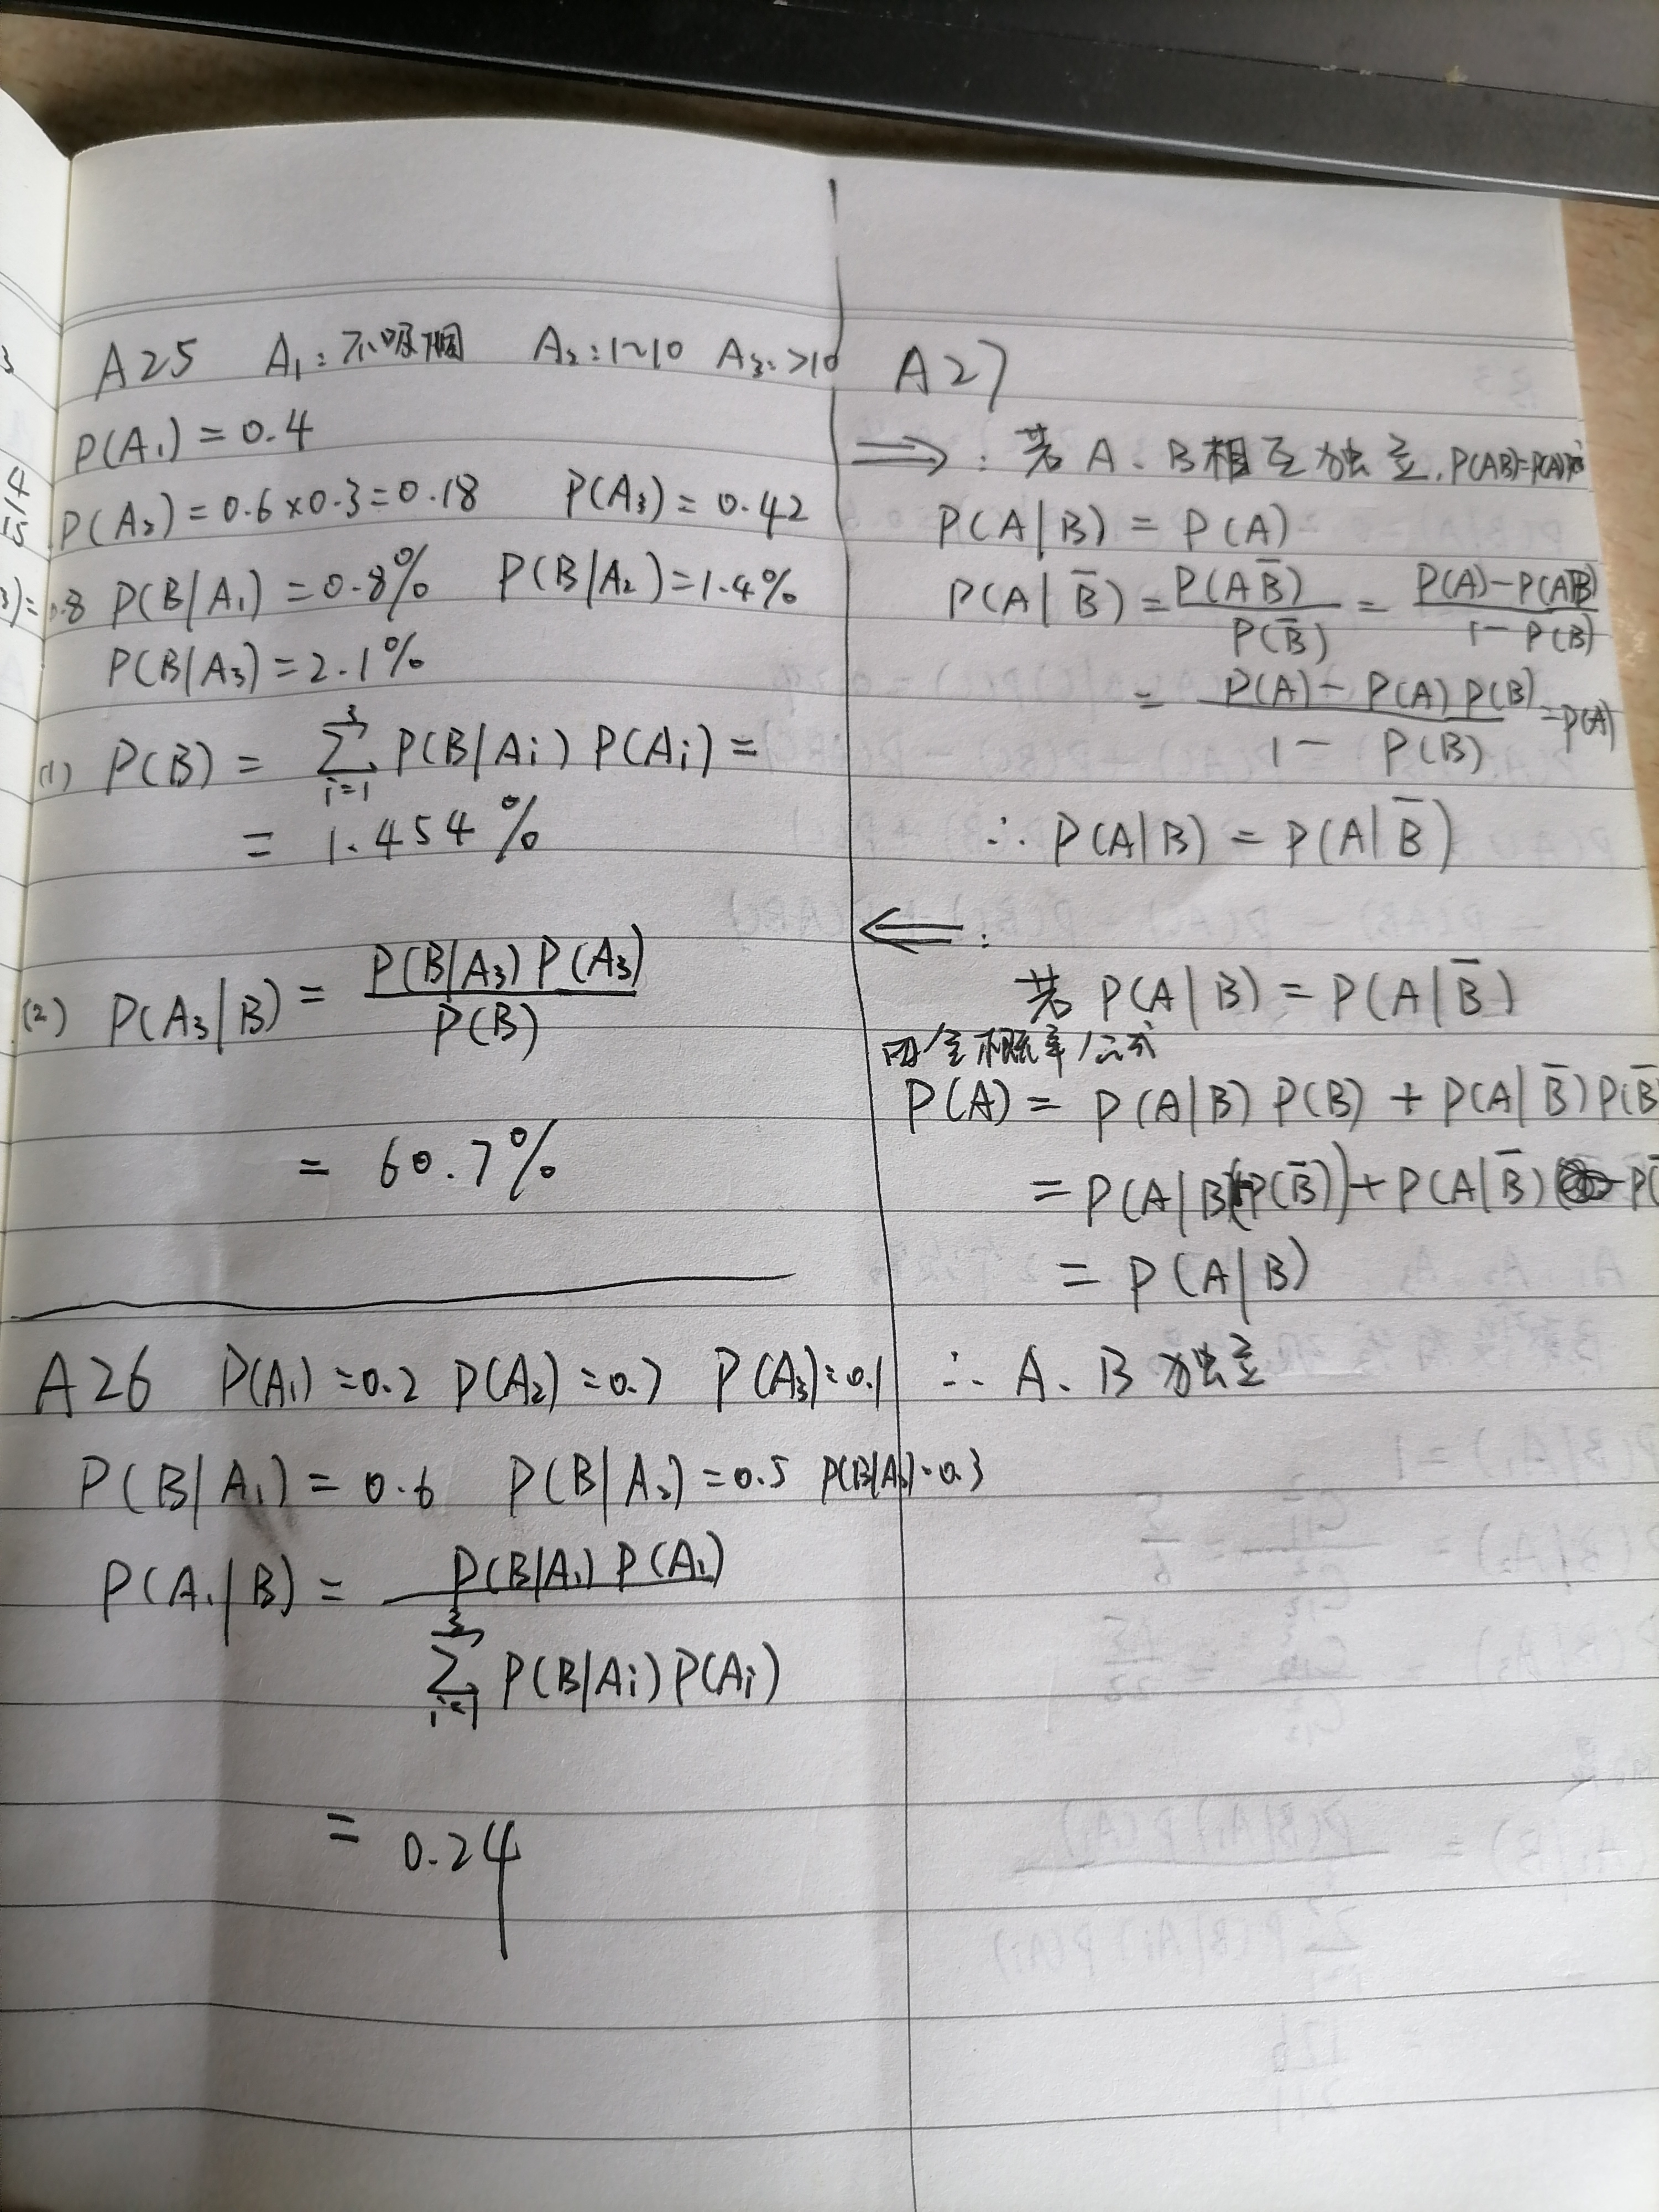 A25 A₁:不吸烟 A₂:1~10 A₃:>10
P(A₁)=0.4
P(A₂)=0.6×0.3=0.18 P(A₃)=0.42
P(B|A₁)=0.8% P(B|A₂)=1.4%
P(B|A₃)=2.1%
(1) P(B)=∑_{i=1}^{3} P(B|Ai)P(Ai)=
=1.454%
(2) P(A₃|B)=P(B|A₃)P(A₃)/P(B)
=60.7%
A26 P(A₁)=0.2 P(A₂)=0.7 P(A₃)=0.1
P(B|A₁)=0.6 P(B|A₂)=0.5 P(B|A₃)=0.3
P(A₁|B)=P(B|A₁)P(A₁)/∑_{i=1}^{3} P(B|Ai)P(Ai)
=0.24
A27
⟹: 若A、B相互独立, P(AB)=P(A)
P(A|B)=P(A)
P(A|B̄)=P(AB̄)/P(B̄)=P(A)-P(AB)/1-P(B)
=P(A)-P(A)P(B)/1-P(B)=P(A)
∴P(A|B)=P(A|B̄)
⟸:
若P(A|B)=P(A|B̄)
由全概率公式
P(A)=P(A|B)P(B)+P(A|B̄)P(B̄
=P(A|B)(1-P(B̄))+P(A|B̄)
=P(A|B)
∴A、B独立